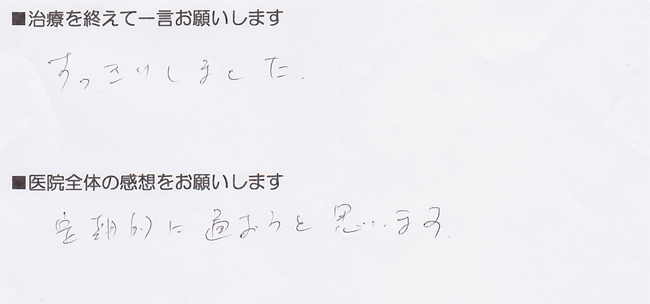 ■治療を終えて一言お願いします
すっきりしました.
■医院全体の感想をお願いします
定期的に通おうと思います.